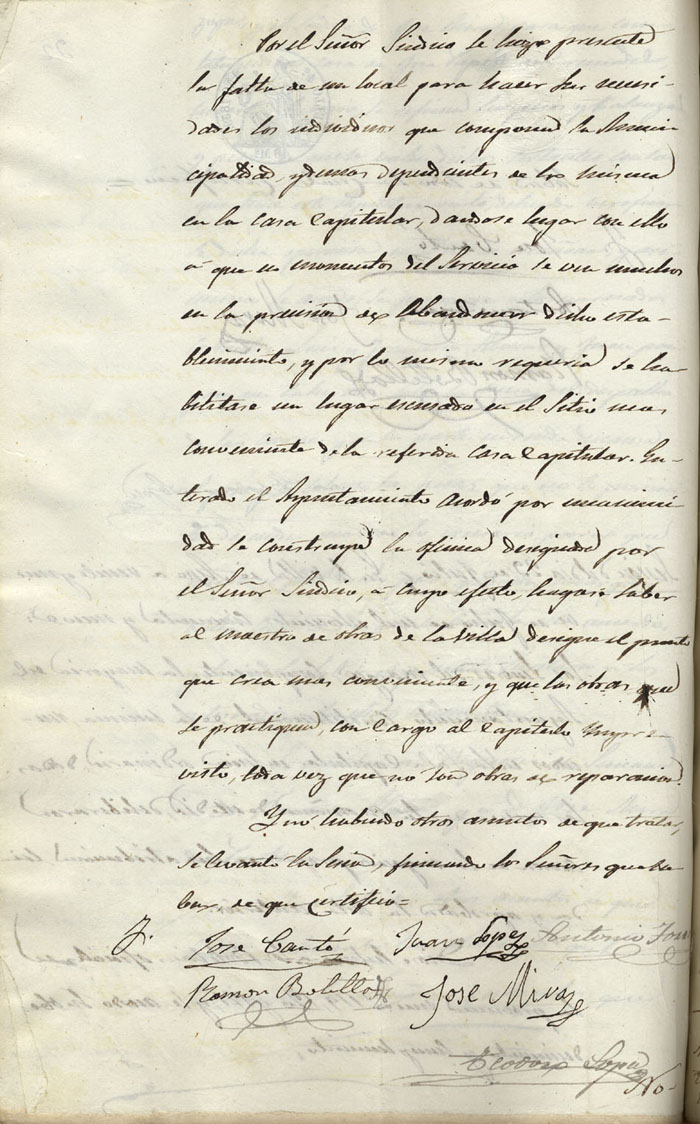 Por el Señor Sindico se hizo presente
la falta de un local para hacer sus necesi-
dades los individuos que componen la Muni-
cipalidad, y demas dependientes de la misma
en la casa Capitular, dandose lugar con ello
á que en momentos del servicio se vea muchos
en la precision de abandonar dicho esta-
blecimiento, y por lo mismo requeria se ha-
bilitase un lugar escusado en el sitio mas
conveniente de la referida casa Capitular. En-
terado el Ayuntamiento acordó por unanimi-
dad se construya la oficina designada por
el Señor Sindico, á cuyo efecto, hagase saber
al maestro de obras de la villa designe el punto
que crea mas conveniente, y que las obras
se practiquen, con cargo al Capitulo Impre-
visto, toda vez que no son obras de reparacion.
Y no habiendo otros asuntos de que tratar,
se levantó la Sesion, firmando los Señores que sa-
ben, de que certifico=
José Cantó Juan Lopez Antonio
Ramon Belello José Mira
Teodoro Lopez
No-